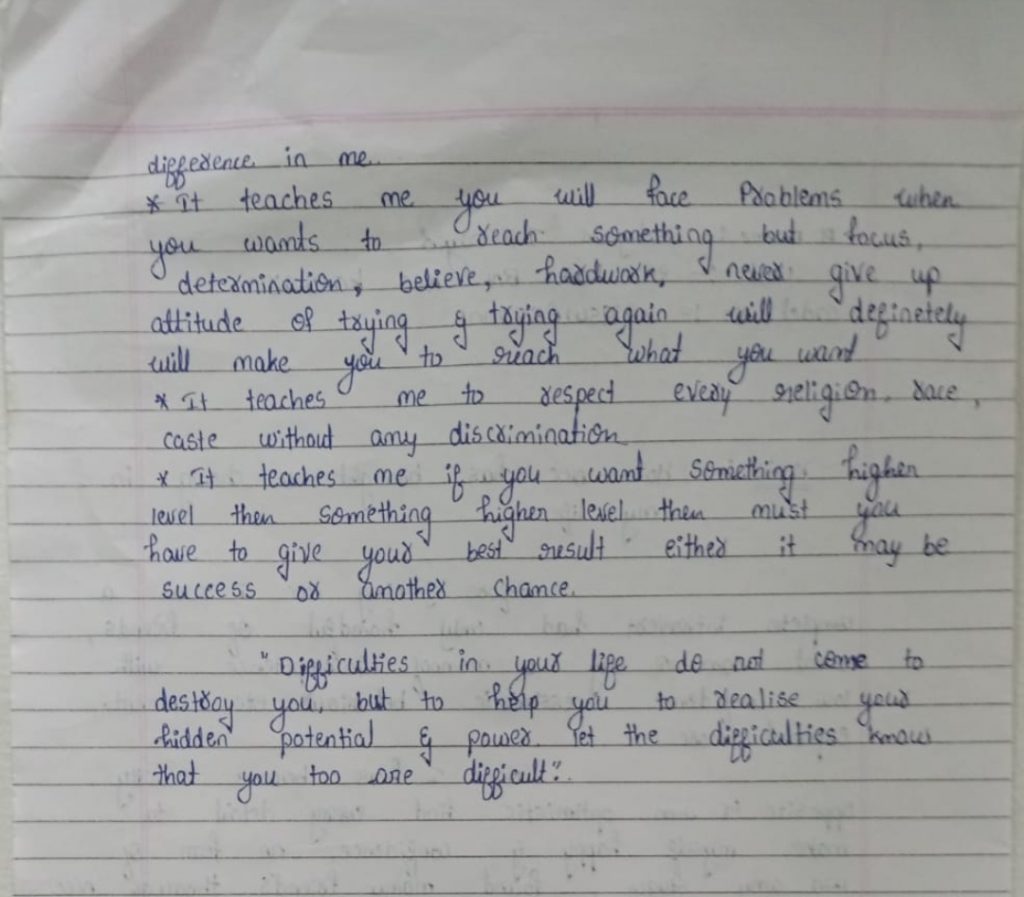 difference in me.
* It teaches me you will face Problems when
you wants to reach something but focus,
determination, believe, hardwork, never give up
attitude of trying & trying again will definetely
will make you to reach what you want
* It teaches me to respect every religion, race,
caste without any discrimination
* It teaches me if you want something higher
level then something higher level then must you
have to give your best result either it may be
success or another chance.
"Difficulties in your life do not come to
destroy you, but to help you to realise your
hidden potential & power. let the difficulties know
that you too are difficult".